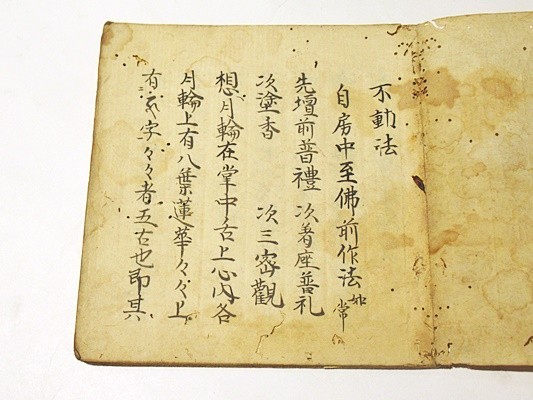 不動法
自房中至佛前作法如常
先壇前普禮 次着座普礼
次塗香 次三密觀
想月輪在掌中舌上心内各
月輪上有八葉蓮華々々上
有字々々者五古也即其